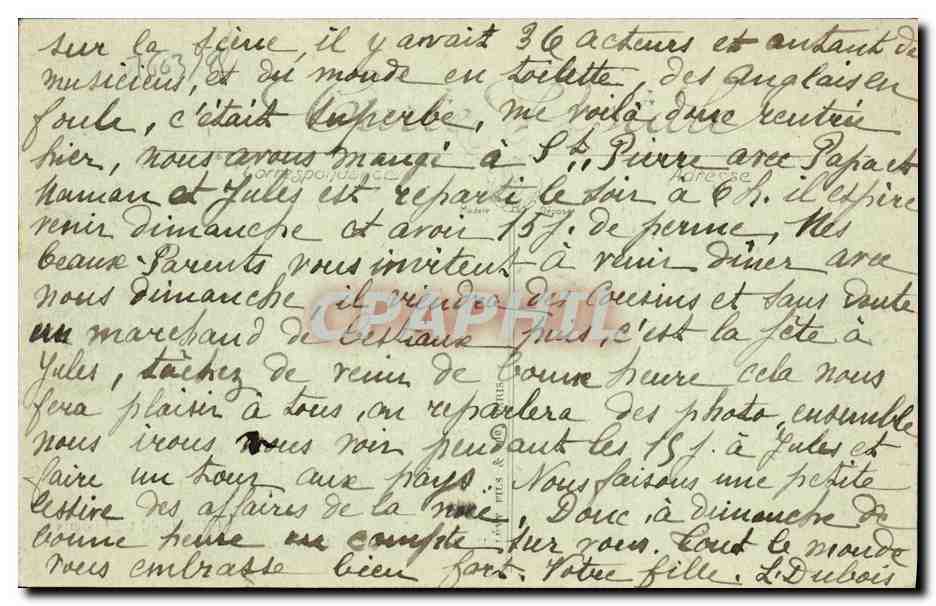 sur la seine, il y avait 36 acteurs et autant de
musiciens, et du monde en toilette, des Anglais en
foule, c'était superbe, me voilà donc rentrée
hier, nous avons mangé à St Pierre avec Papa et
Correspondance Adresse
Maman et Jules est reparti le soir à 6 h. il espère
venir dimanche et avoir 15 j. de perme, Mes
beaux-Parents vous invitent à venir dîner avec
nous dimanche, il viendra des Cousins et sans doute
CPAPHIL
un marchand de bestiaux puis, c'est la fête à
Jules, tâchez de venir de bonne heure cela nous
fera plaisir à tous, on reparlera des photo, ensemble
nous irons vous voir pendant les 15 j. à Jules et
faire un tour aux pays. Nous faisons une petite
lessive des affaires de la Donc, à dimanche de
bonne heure on compte sur vous. Tout le monde
vous embrasse bien fort. Votre fille. L. Dubois
FILS &